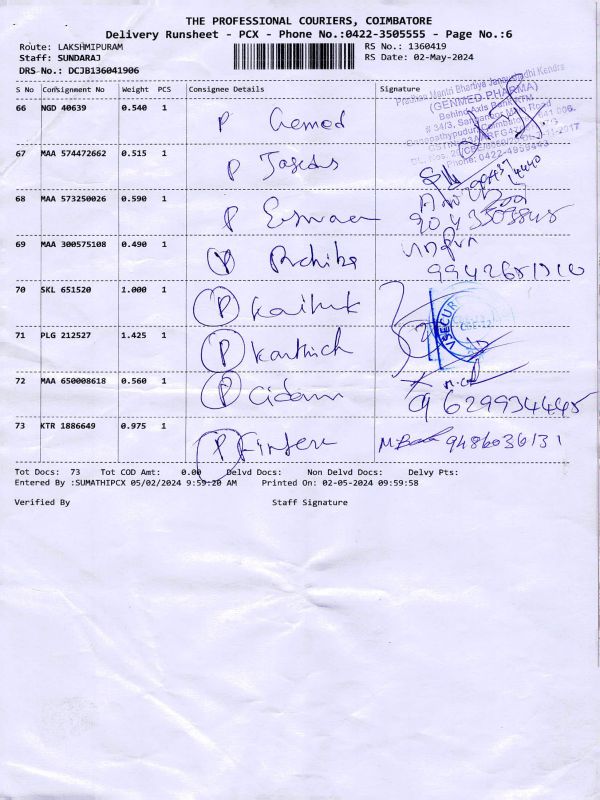 THE PROFESSIONAL COURIERS, COIMBATORE
Delivery Runsheet - PCX - Phone No.:0422-3505555 - Page No.:6
Route: LAKSHMIPURAM RS No.: 1360419
Staff: SUNDARAJ RS Date: 02-May-2024
DRS No.: DCJB136041906
S No Consignment No Weight PCS Consignee Details Signature
Pradhan Mantri Bhartiya Janaushadhi Kendra
(GENMED PHARMA)
Behind Axis Bank ATM
# 34/3, Sanganoor Main Road
66 NGD 40639 0.540 1 P Gemed
Phone: 0422-4959443
67 MAA 574472662 0.515 1 P
68 MAA 573250026 0.590 1 P
69 MAA 300575108 0.490 1 P
70 SKL 651520 1.000 1 P
71 PLG 212527 1.425 1 P Karthick
72 MAA 650008618 0.560 1 P 629934445
73 KTR 1886649 0.975 1 P 9486036131
Tot Docs: 73 Tot COD Amt: 0.00 Delvd Docs: Non Delvd Docs: Delvy Pts:
Entered By :SUMATHIPCX 05/02/2024 9:59:20 AM Printed On: 02-05-2024 09:59:58
Verified By Staff Signature